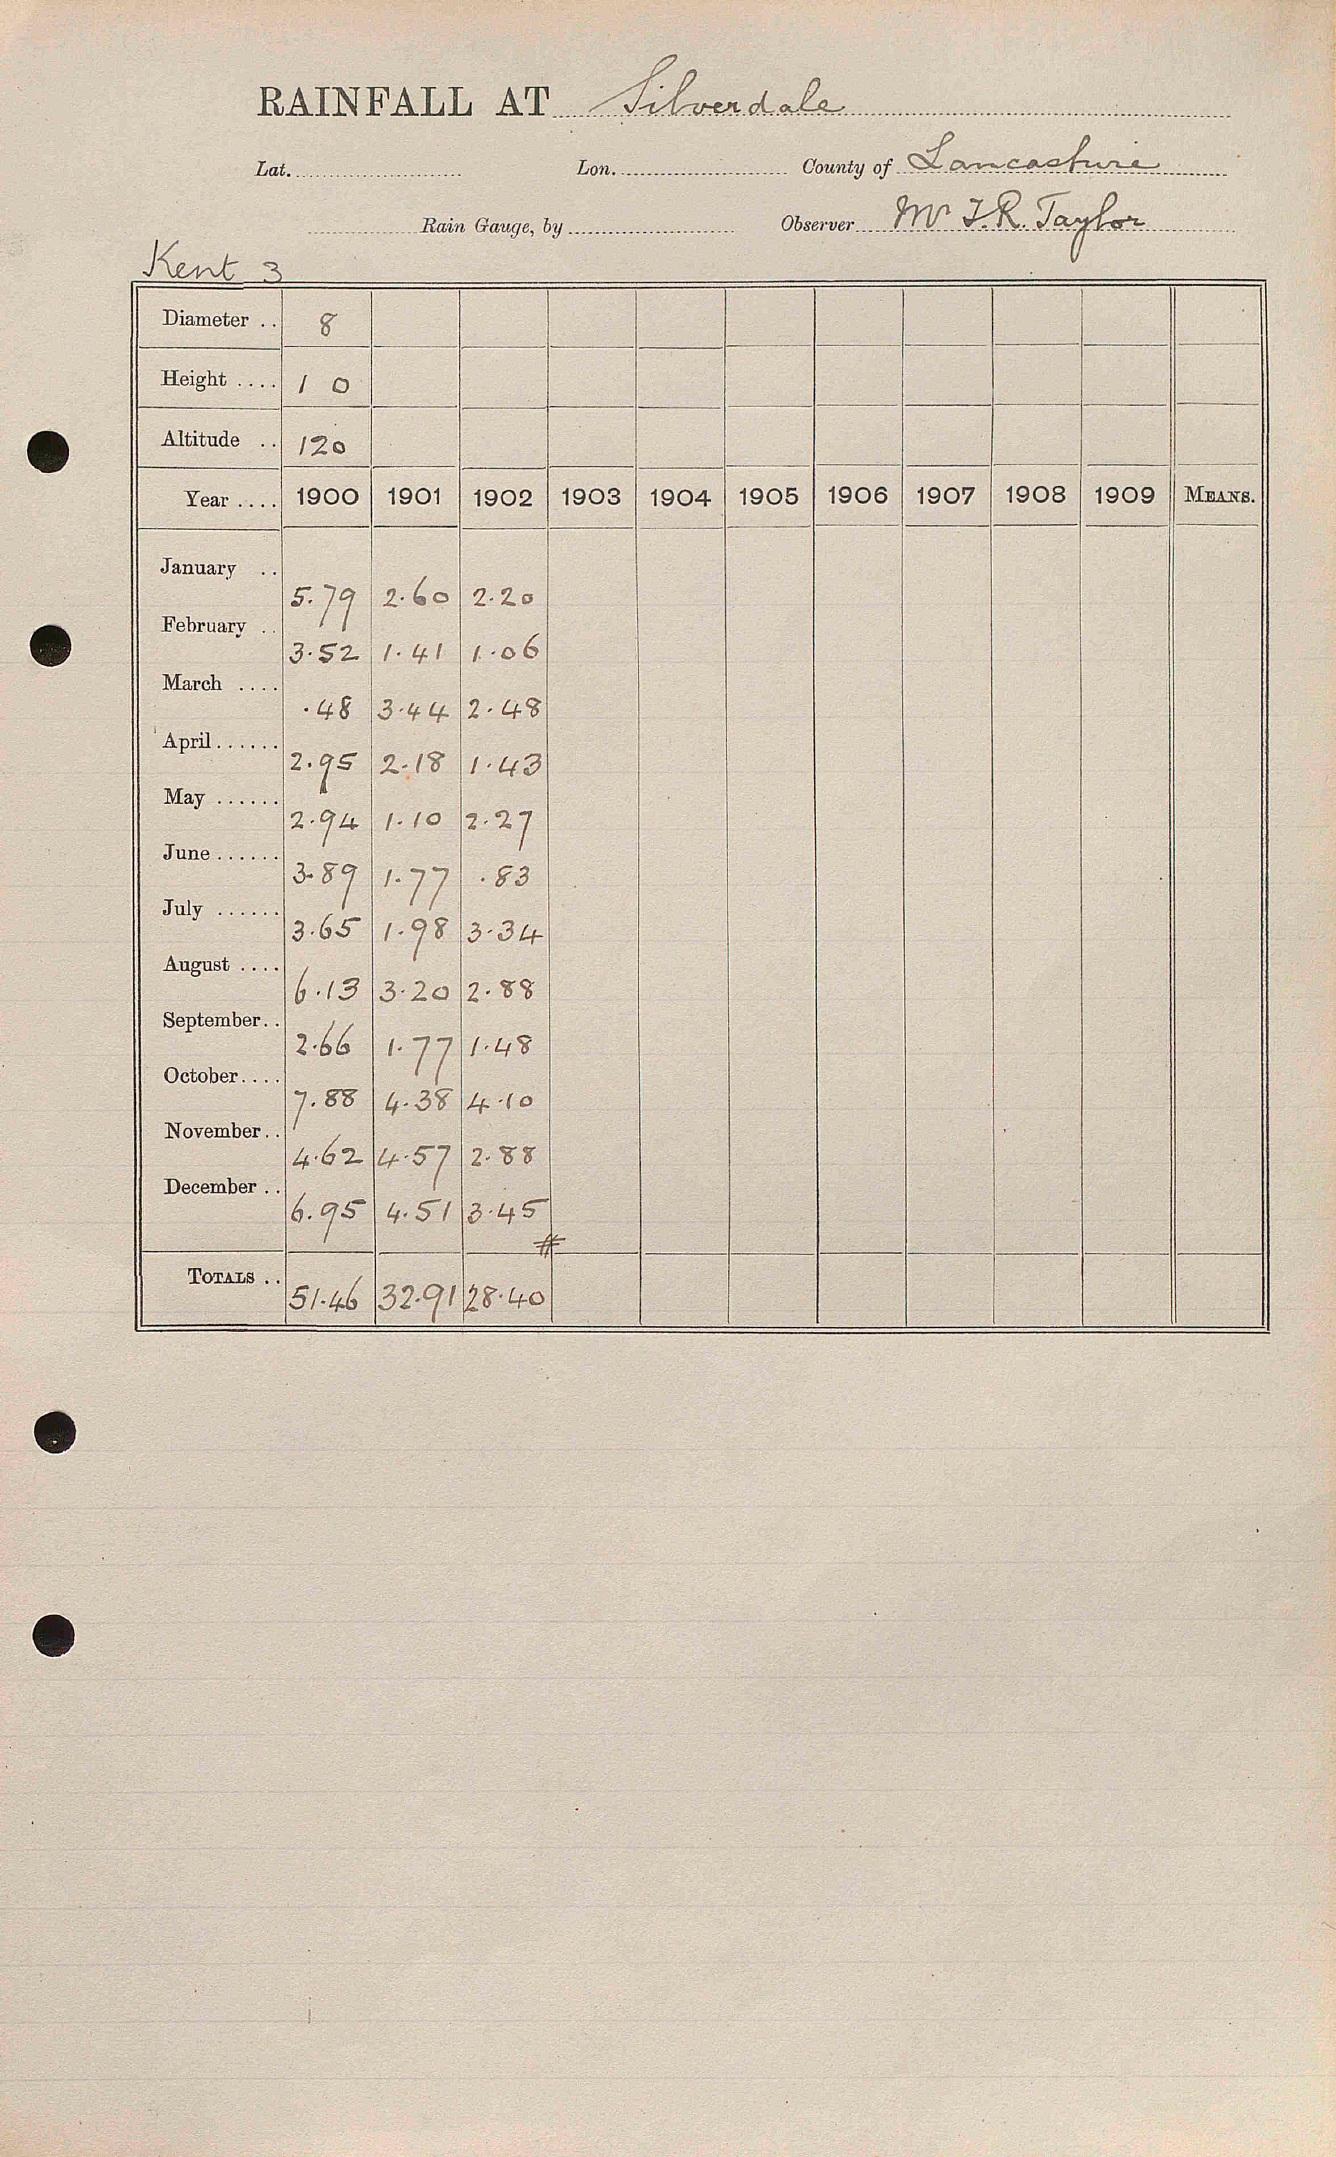 RAINFALL AT Silverdale
Lat. Lon. County of Lancashire
Rain Gauge, by Observer Mr T.R. Taylor
Kent 3
Diameter .. 8
Height .... 1 0
Altitude .. 120
Year .... 1900 1901 1902 1903 1904 1905 1906 1907 1908 1909 MEANS.
January .. 5.79 2.60 2.20
February .. 3.52 1.41 1.06
March .... .48 3.44 2.48
April...... 2.95 2.18 1.43
May ...... 2.94 1.10 2.27
June...... 3.89 1.77 .83
July ...... 3.65 1.98 3.34
August .... 6.13 3.20 2.88
September.. 2.66 1.77 1.48
October.... 7.88 4.38 4.10
November.. 4.62 4.57 2.88
December .. 6.95 4.51 3.45
#
TOTALS .. 51.46 32.91 28.40